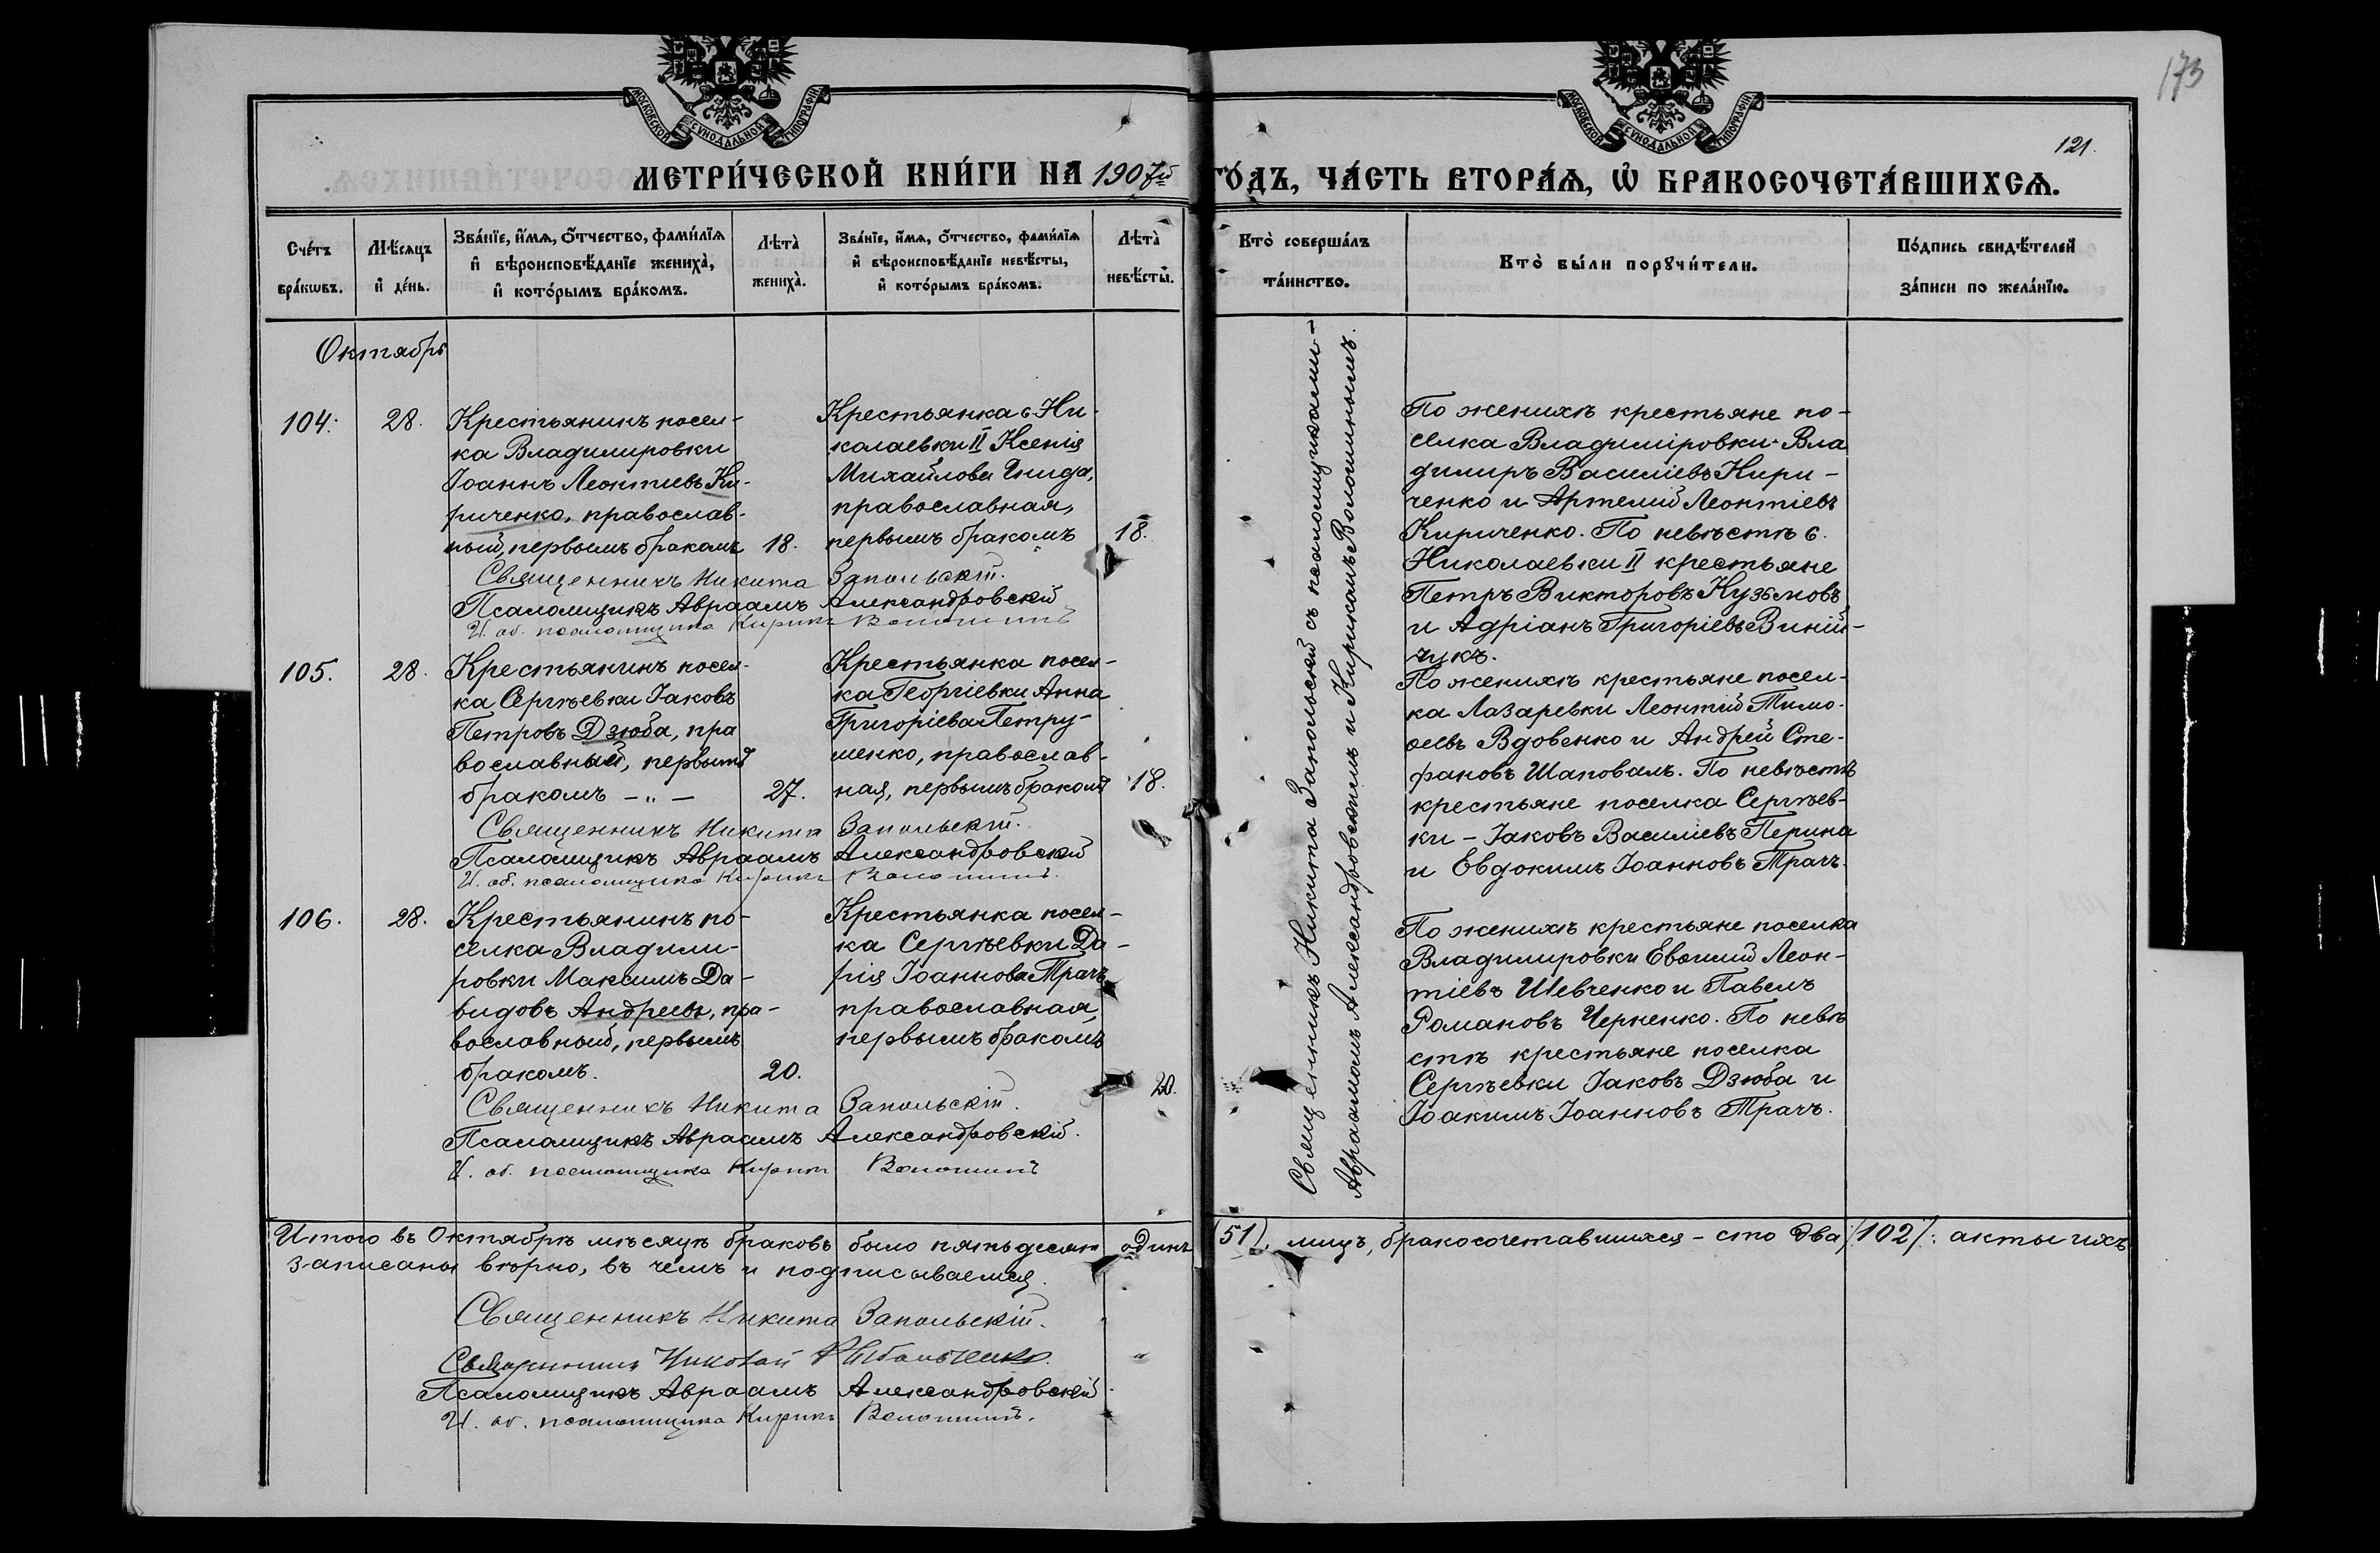 173
121.
МОСКОВСКОЙ СѴНОДАЛЬНОЙ ТИПОГРАФІИ
МОСКОВСКОЙ СѴНОДАЛЬНОЙ ТИПОГРАФІИ
МЕТРИ́ЧЕСКОЙ КНИ́ГИ НА 1907й ГО́ДЪ, ЧА́СТЬ ВТОРА́Ѧ, Ѡ҆ БРАКОСОЧЕТА́ВШИХСѦ.
Сче́тъ бра́кѡвъ.
Мѣ́сѧцъ и҆ де́нь.
Зва́нїе, и҆́мѧ, ѻ҆́тчество, фами́лїѧ
и҆ вѣроисповѣ́данїе жениха̀,
и҆ кото́рымъ бра́комъ.
Лѣта̀ жениха̀.
Зва́нїе, и҆́мѧ, ѻ҆́тчество, фами́лїѧ
и҆ вѣроисповѣ́данїе невѣ́сты,
и҆ кото́рымъ бра́комъ.
Лѣта̀ невѣ́сты.
Кто̀ соверша́лъ
та́инство.
Кто̀ бы́ли порꙋчи́тели.
По́дпись свидѣ́телей
за́писи по жела́нїю.
Октябрь
104.
28.
Крестьянинъ посел-
ка Владимировки
Іоаннъ Леонтиевъ Ки-
риченко, православ-
ный, первымъ бракомъ
18.
Крестьянка с. Ни-
колаевки II Ксенія
Михайлова Гнида,
православная,
первымъ бракомъ
18.
По женихѣ крестьяне по-
селка Владиміровки - Вла
димиръ Василіевъ Кири-
ченко и Артемий Леонтіевъ
Кириченко. По невѣстѣ с.
Николаевки II крестьяне
Петръ Викторовъ Кузьмовъ
и Адріанъ Григоріевъ Виній-
чукъ.
Священникъ Никита Запольскій.
Псаломщикъ Авраамъ Александровскій
И. об. псаломщика Кирикъ Волошинъ
105.
28.
Крестьянинъ посел-
ка Сергѣевки Іаковъ
Петровъ Дзюба, пра
вославный, первымъ
бракомъ - „ -
27.
Крестьянка посел-
ка Георгіевки Анна
Григоріева Петру-
шенко, православ-
ная, первымъ бракомъ
18.
По женихѣ крестьяне посел-
ка Лазаревки Леонтій Тимо-
ѳеевъ Вдовенко и Андрей Сте-
фановъ Шаповалъ. По невѣстѣ
крестьяне поселка Сергѣев-
ки - Іаковъ Василіевъ Перина
и Евдокимъ Іоанновъ Трачъ.
Священникъ Никита Запольскій.
Псаломщикъ Авраамъ Александровскій
И. об. псаломщика Кирикъ Волошинъ.
106.
28.
Крестьянинъ по-
селка Владими-
ровки Максимъ Да-
видовъ Андреевъ, пра-
вославный, первымъ
бракомъ.
20.
Крестьянка посел-
ка Сергѣевки Да-
рія Іоаннова Трачъ,
православная,
первымъ бракомъ
20.
По женихѣ крестьяне поселка
Владимировки Евѳимий Леон-
тіевъ Шевченко и Павелъ
Романовъ Черненко. По невѣ
стѣ крестьяне поселка
Сергѣевки Іаковъ Дзюба и
Іоакимъ Іоанновъ Трачъ.
Священникъ Никита Запольскій.
Псаломщикъ Авраамъ Александровскій.
И. об. псаломщика Кирикъ Волошинъ
Священникъ Никита Запольскій съ псаломщиками -
Авраамомъ Александровскимъ и Кирикомъ Волошинымъ.
Итого въ Октябрѣ мѣсяцѣ браковъ было пятьдесят одинъ (51), лицъ, бракосочетавшихся - сто два /102/: акты ихъ
записаны вѣрно, въ чемъ и подписываемся.
Священникъ Никита Запольскій.
Священникъ Николай
Псаломщикъ Авраамъ Александровскій.
И. об. псаломщика Кирикъ Волошинъ.